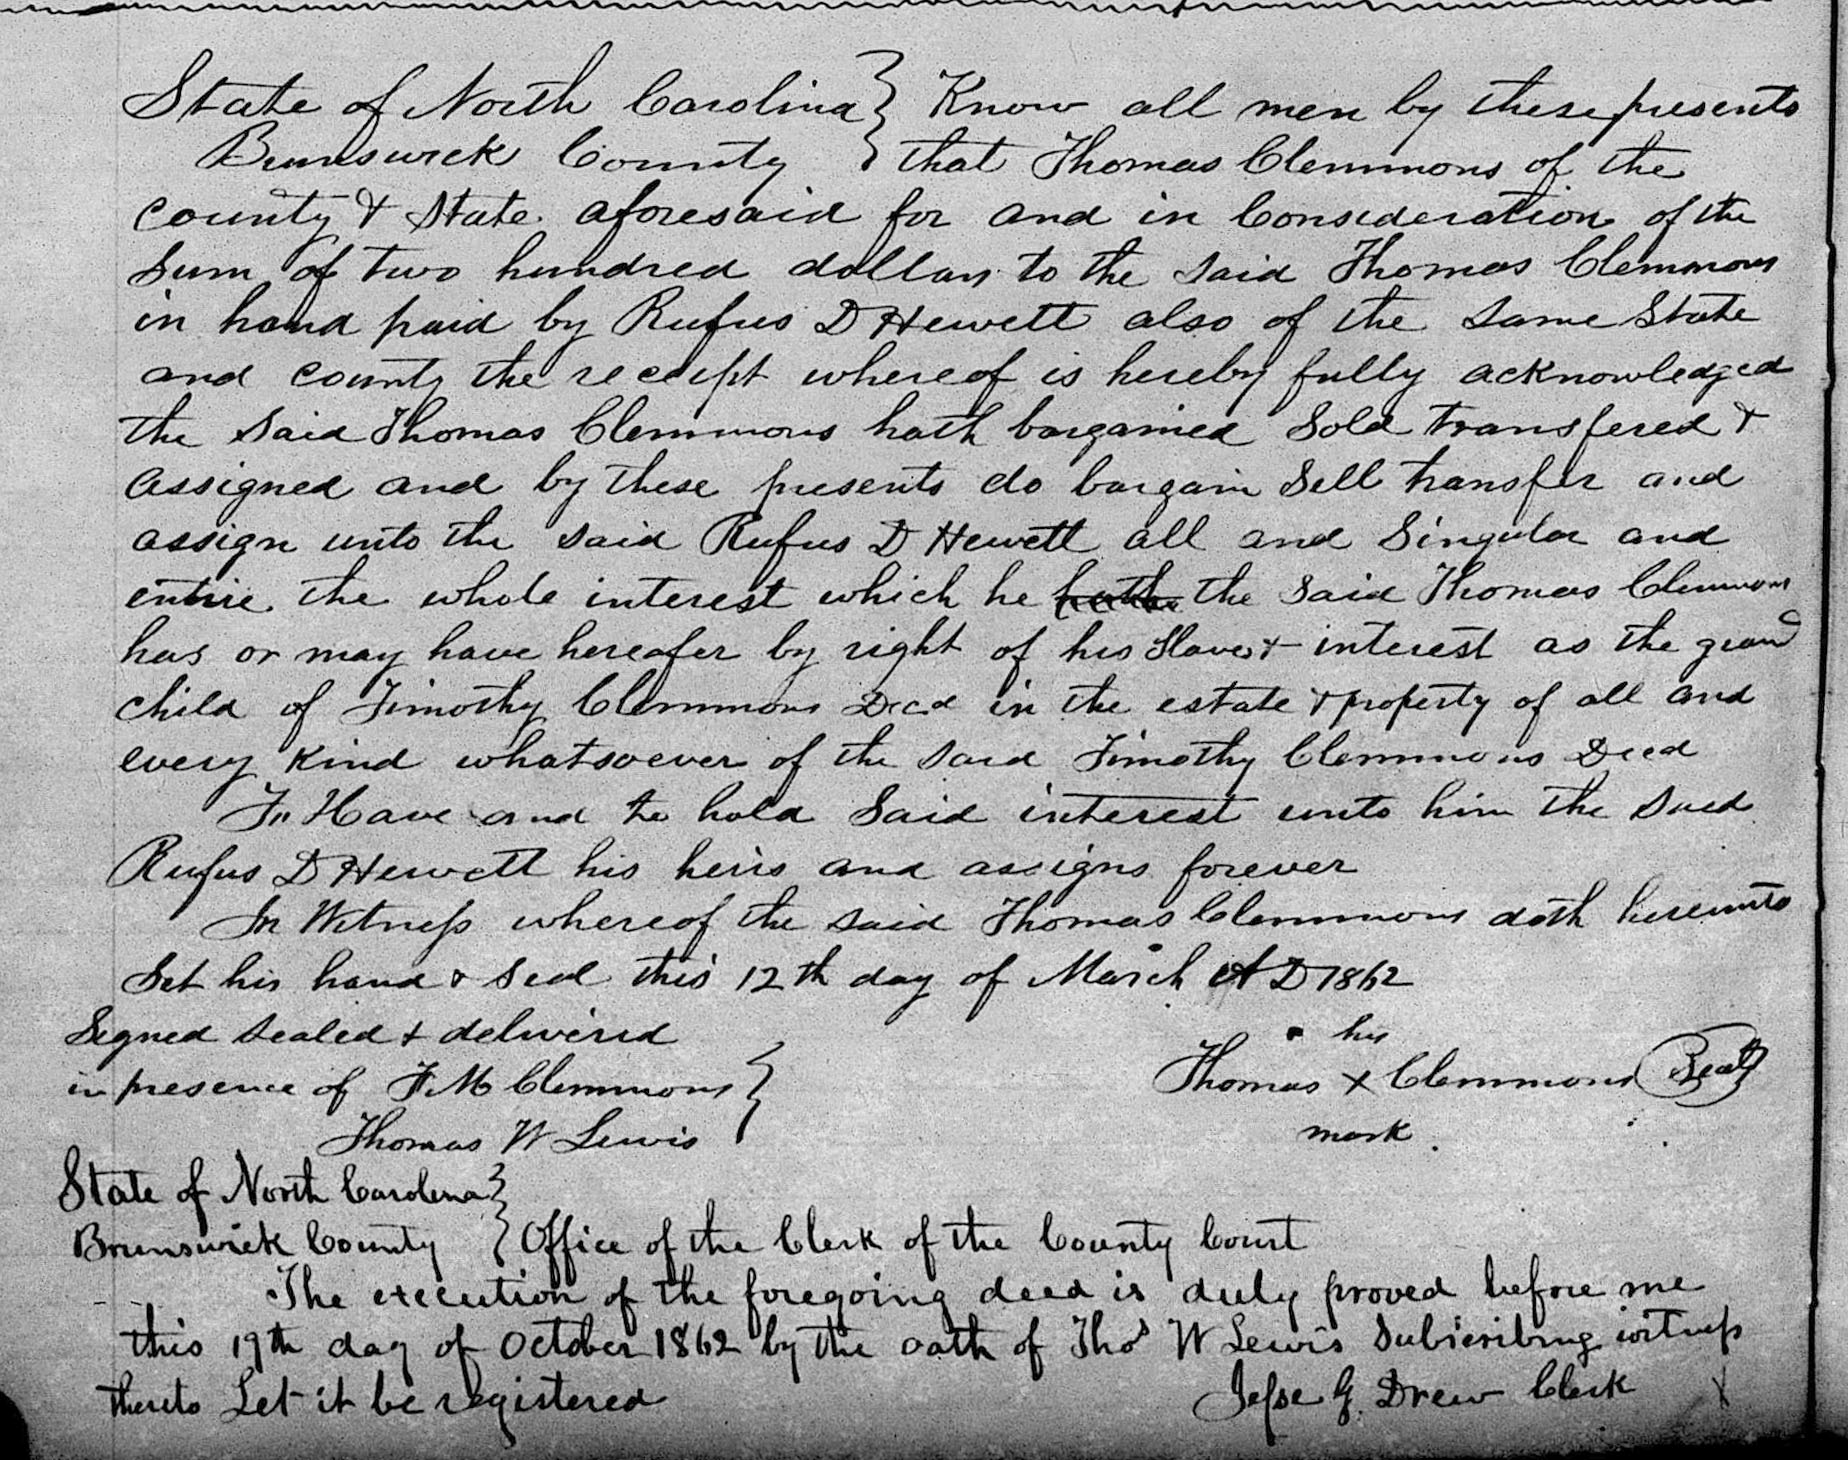 State of North Carolina } Know all men by these presents
Brunswick County } that Thomas Clemmons of the
county & State aforesaid for and in Consideration of the
Sum of two hundred dollars to the said Thomas Clemmons
in hand paid by Rufus D Hewett also of the same State
and county the receipt whereof is hereby fully acknowledged
the said Thomas Clemmons hath bargained Sold transfered &
assigned and by these presents do bargain Sell transfer and
assign unto the said Rufus D Hewett all and Singular and
entire the whole interest which he hath the said Thomas Clemmons
has or may have hereafer by right of his & interest as the grand
child of Timothy Clemmons Decd in the estate & property of all and
every kind whatsoever of the said Timothy Clemmons Decd
To Have and to hold Said interest unto him the said
Rufus D Hewett his heirs and assigns forever
In Witness whereof the said Thomas Clemmons doth hereunto
Set his hand & seal this 12th day of March A D 1862
Signed sealed & delivered
his
in presence of F. M Clemmons } Thomas x Clemmons Seal
Thomas W Lewis mark
State of North Carolina }
Brunswick County } Office of the Clerk of the County Court
The execution of the foregoing deed is duly proved before me
this day of October 1862 by the oath of Thos W Lewis Subscribing witness
thereto Let it be registered Jesse G. Drew Clerk